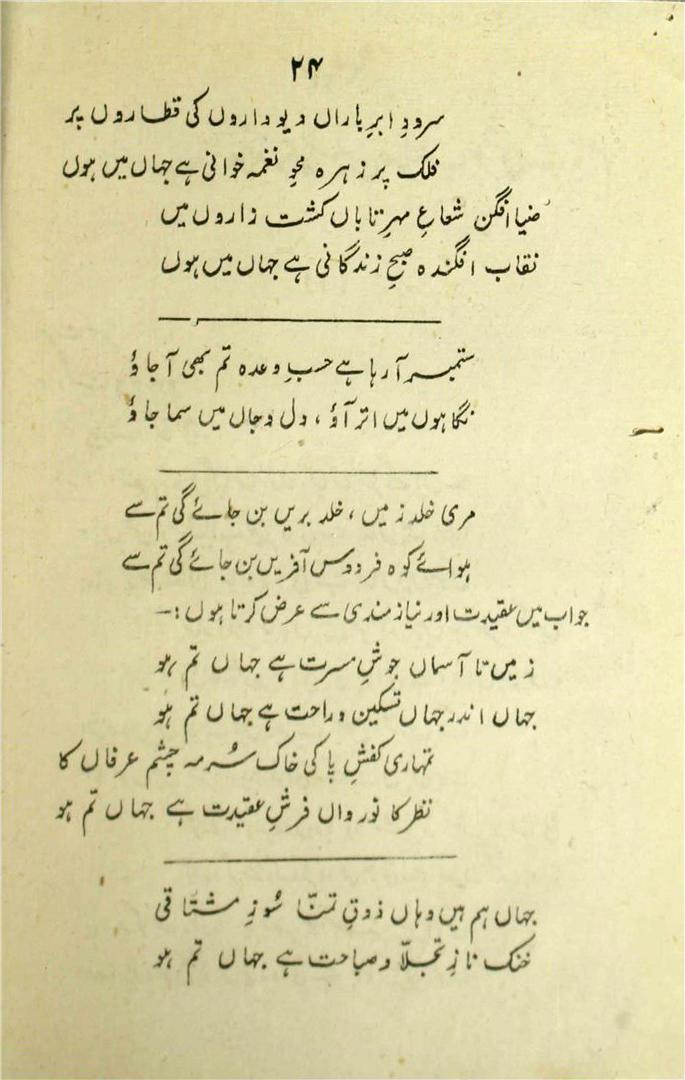 ۲۴
سرودِ ابرِ باراں دیوداروں کی قطاروں پر
فلک پر زہرہ محوِ نغمہ خوانی ہے جہاں میں ہوں
ضیا افگن شعاعِ مہرِ تاباں کشت زاروں میں
نقاب افگندہ صبحِ زندگانی ہے جہاں میں ہوں
ستمبر آ رہا ہے حسبِ وعدہ تم بھی آ جاؤ
نگاہوں میں اتر آؤ، دل و جاں میں سما جاؤ
مری خلد زمیں، خلد بریں بن جائے گی تم سے
ہوائے کوہ فردوس آفریں بن جائے گی تم سے
جواب میں عقیدت اور نیاز مندی سے عرض کرتا ہوں :-
زمیں تا آسماں جوشِ مسرت ہے جہاں تم ہو
جہاں اندر جہاں تسکین و راحت ہے جہاں تم ہو
تمہاری کفشِ پا کی خاک سُرمہ چشم عرفاں کا
نظر کا نور واں فرشِ عقیدت ہے جہاں تم ہو
جہاں ہم ہیں وہاں ذوقِ تمنّا سُوزِ مشتاقی
خنک نازِ تجلّا و صباحت ہے جہاں تم ہو